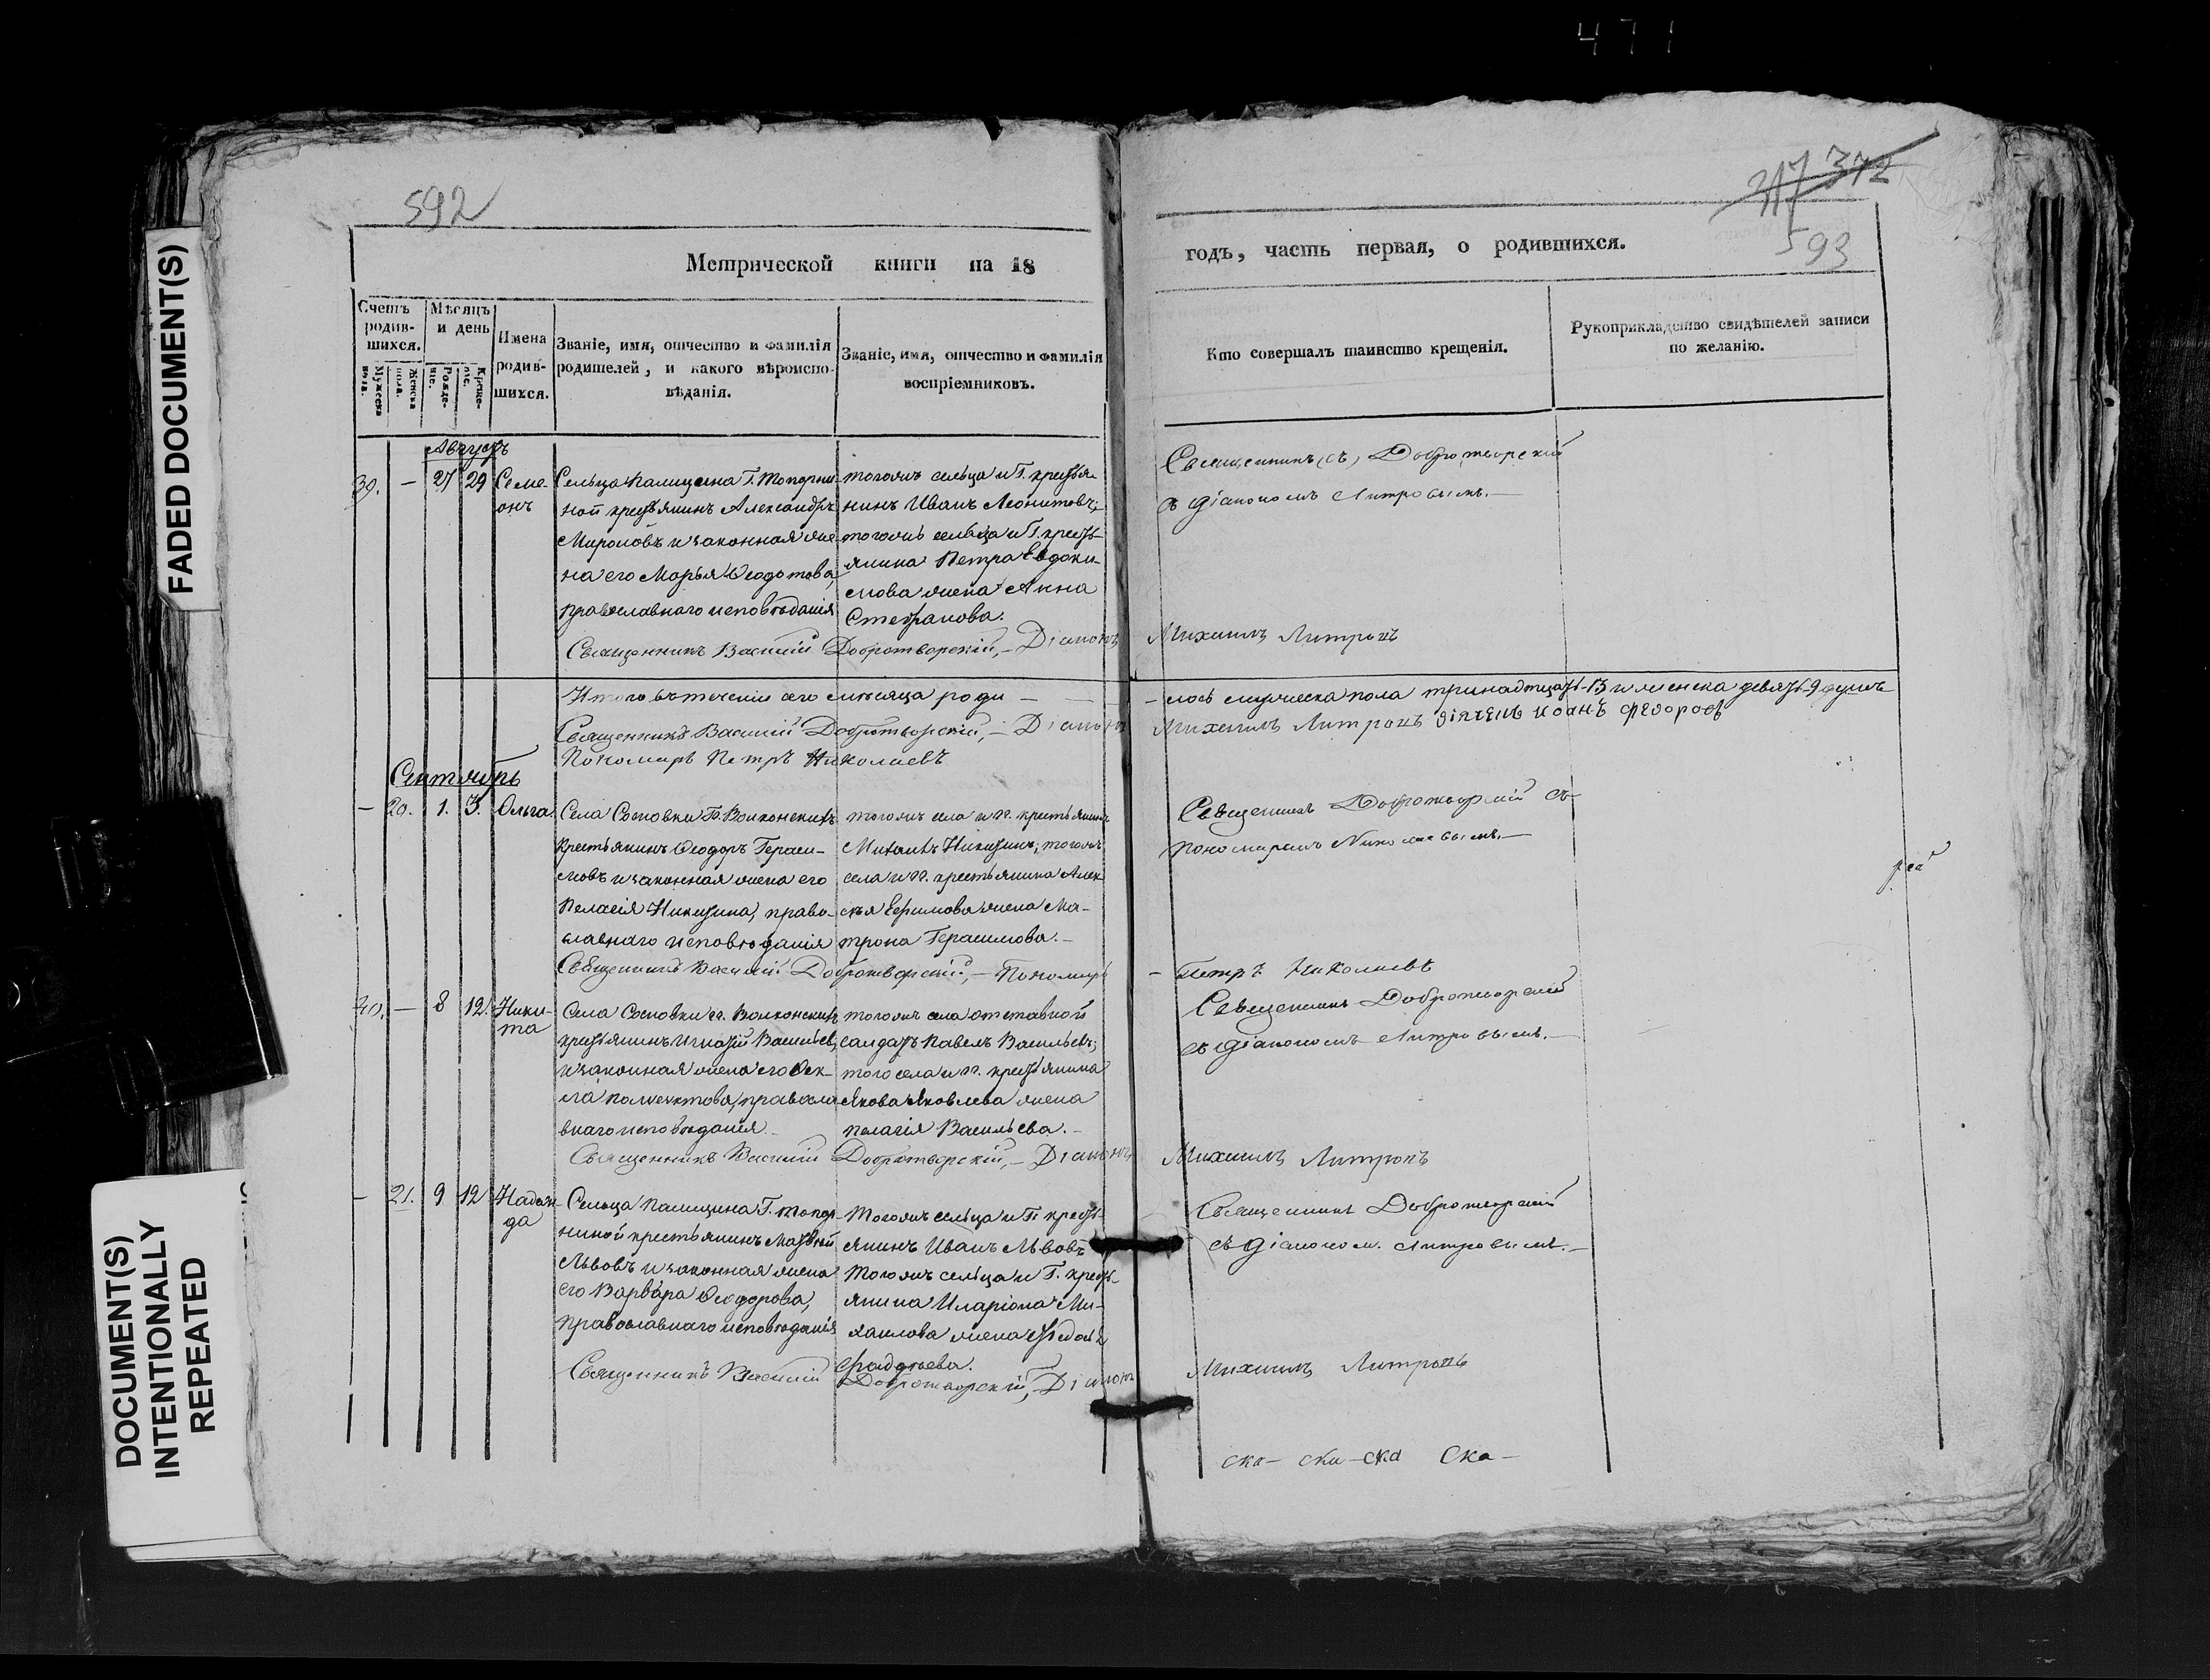 471
592
317 372
593
FADED DOCUMENT(S)
DOCUMENT(S)
INTENTIONALLY
REPEATED
Метрической книги на 18
годъ, часть первая, о родившихся.
Счетъ родив-шихся.
Мужеска пола.
Женска пола.
Мѣсяцъ и день
Рожде-ніе.
Креще-ніе.
Имена родив-шихся.
Званіе, имя, отчество и фамилія родителей, и какого вѣроиспо-вѣданія.
Званіе, имя, отчество и фамилія воспріемниковъ.
Кто совершалъ таинство крещенія.
Рукоприкладство свидѣтелей записи по желанію.
Августъ
39. — 27 29 Семе-онъ
Сельца Палицына Г. Топорни-
ной крестьянинъ Александръ
Мироновъ и законная же-
на его Марья Ѳеодотова,
православнаго исповѣданія
тогожъ сельца и Г. крестья-
нинъ Иванъ Леонтьевъ;
тогожъ сельца и Г. кресть-
янина Петра Евдоки-
мова жена Анна
Стефанова.
Священникъ Добротворскій
съ діакономъ Митровымъ.—
Священникъ Василій Добротворскій,— Діаконъ Михаилъ
Итого въ теченіи сего мѣсяца роди — — лось мужеска пола тринадцать-13 и женска девять-9 душъ
Священникъ Василій Добротворскій,— Діаконъ Михаилъ дьячекъ Иоанъ Федоровъ
Пономарь Петръ Николаевъ
Сентябрь
— 20. 1. 3. Ольга
Села Сосновки Гг. Волконскихъ
крестьянинъ Ѳеодоръ Гераси-
мовъ и законная жена его
Пелагія Никитина, право-
славнаго исповѣданія
тогожъ села и гг. крестьянинъ
Михаилъ Никитинъ; тогожъ
села и гг. крестьянина Алек-
сѣя Ефимова жена Ма-
трона Герасимова.—
Священникъ Добротворскій съ
пономаремъ Николаевымъ.—
Священникъ Василій Добротворскій,— Пономарь — Петръ Николаевъ
40. — 8 12. Ники-та
Села Сосновки гг. Волконскихъ
крестьянинъ Игнатій Васильевъ,
и законная жена его Ѳек-
ла православ-
внаго исповѣданія.
тогожъ села отставной
солдатъ Павелъ Васильевъ;
того села и гг. крестьянина
Якова Яковлева жена
Пелагія Васильева.—
Священникъ Добротворскій
съ діакономъ
Священникъ Василій Добротворскій,— Діаконъ Михаилъ
— 21. 9 12 Надеж-да
Сельца Палицына Г. Топор-
ниной крестьянинъ Матвѣй
Львовъ и законная жена
его Варвара Ѳеодорова,
православнаго исповѣданія
Тогожъ сельца и Г. кресть-
янинъ Иванъ Львовъ
Тогожъ сельца и Г. кресть-
янина Иларіона Ми-
хаилова жена
Фадѣева.
Священникъ Добротворскій
съ діаконом.
Священникъ Василій Добротворскій,— Діаконъ Михаилъ
ска— ска—ска Ска—